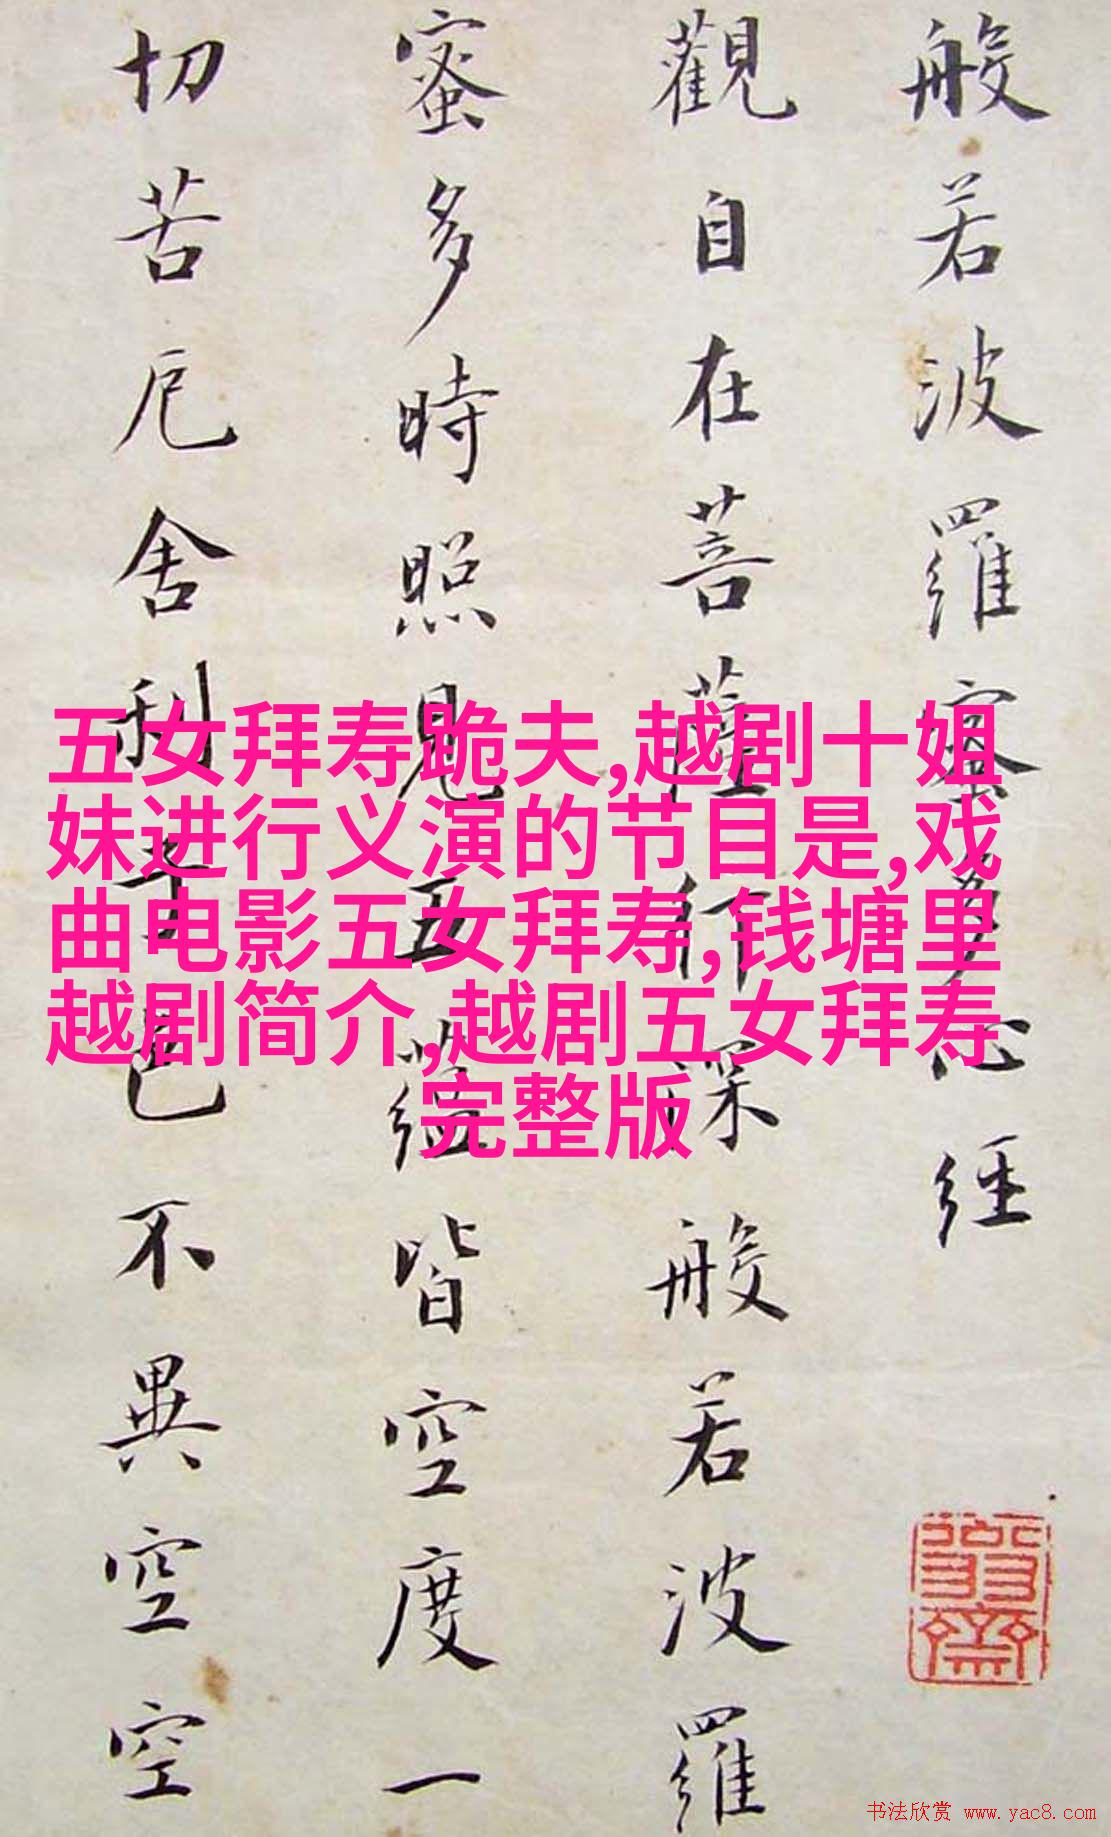 般若波羅蜜多心經
觀自在菩薩行深般若波羅
蜜多時照見五蘊皆空度一
切苦厄舍利子色不異空空
五女拜寿跪夫,越剧十姐
妹进行义演的节目是,戏
曲电影五女拜寿,钱塘里
越剧简介,越剧五女拜寿
完整版
书法欣赏 www.yac8.com